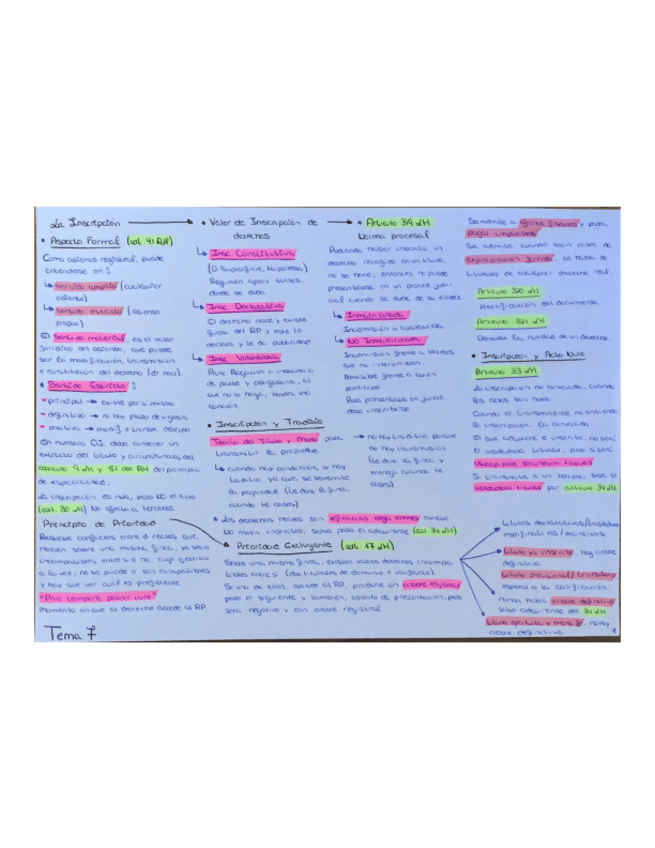 La Inscripción
• Aspecto Formal (art. 41 RH)
Como asiento registral, puede
entenderse en:
↳ sentido amplio (cualquier
asiento)
↳ sentido estricto (asiento
propio)
El sentido material, es el valor
jurídico del asiento, que puede
ser la modificación, transmisión
o constitución del derecho (dº real).
• Sentido Estricto:
- principal → existe por sí mismo
- definitivo → no hay plazo de vigencia
- positivo → modif e transm. derecho
En nuestro OJ, debe contener un
extracto del título y circunstancias del
artículo 9 LH y 51 del RH del principio
de especialidad.
La inscripción es nula, pero NO el acto
(art. 30 LH) No afecta a terceros.
Principio de Prioridad
Resuelve conflictos entre dº reales que,
recaen sobre una misma finca, ya sean
incompatibles entre sí o no, cuyo ejercicio
a la vez, no se puede o son compatibles
y hay que ver cuál es preferente.
"Prior tempore potior iure"
Momento en que el derecho accede al RP.
Tema 7
• Valor de Inscripción de
derechos
↳ Insc. Constitutiva
(D. Superficie, Hipoteca)
Régimen aprov. turnos.
↳ Insc. Declarativa
El derecho nace y existe
fuera del RP y este lo
declara y le da publicidad.
↳ Insc. Voluntaria
Princ. Rogación a instancia
de parte y obligatoria, si
que no lo haga, tendrá una
sanción.
• Inscripción y Tradición
Teoría del Título y Modo para
transmitir la propiedad.
↳ cuando hay condición, sí hay
traditio, ya que, se transmite
la propiedad (Le doy la finca,
cuando te cases)
→ no hay traditio, porque
no hay transmisión
(Le daré la finca y
entrego cuando te
cases)
• Los derechos reales son eficacias erga omnes aunque
no estén inscritos, salvo para el adquirente (art. 34 LH)
Prioridad Excluyente (art. 17 LH)
Sobre una misma finca, existen varios derechos incompa
tibles entre sí (dos titulares de dominio o usufructo).
Si uno de ellos, accede al RP, produce un cierre registral
para el siguiente y también, asiento de presentación, pero
será negativo y con cierre registral.
• Artículo 319 LH
Norma procesal
Pudiendo haber inscrito un
derecho recogido en un título,
no se hace, entonces no puede
presentarse en un proced. judi-
cial cuando se dude de su validez.
↳ Inmatriculada
Inadmisión a cualquiera.
↳ No Inmatriculada
Inadmisión frente a terceros
que no intervinieron.
Admisible frente a quien
participó.
Para presentarlo en juicio,
debe inscribirse
Se admite a efectos fiscales y para,
pagar impuestos.
Se admite cuando sean casos de
expropiación forzosa, se habla de
titulares de cualquier derecho real.
Artículo 320 LH
Rectificación del documento.
Artículo 321 LH
Declarar la nulidad de un derecho.
• Inscripción y Acto Nulo
Artículo 33 LH
La inscripción no convalida, cuando
los actos son nulos.
Cuando el transmitente no entiende
la inscripción, la convalida.
El que adquiere e inscribe, no será
el verdadero titular, pero sí será
usucapiente secundum tabulas.
Si transmite a un tercero, será el
verdadero titular por artículo 34 LH
títulos declarativos/traslativos
modificativos / extintivos
título ya inscrito, hay cierre
definitivo
título provisional / transitorio
espera a la calificación.
nunca habrá cierre definitivo
salvo adquirente del 34 LH
título , no hay
cierre definitivo
1